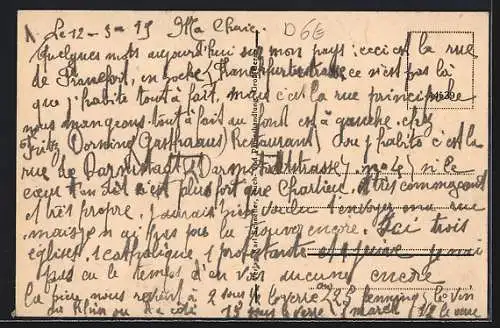 Le 12-3-19 Ma Chérie. D6E
Quelques mots aujourd'hui sur mon pays: ceci est la rue
de Francfort, en boche (Frankfurterstrasse) ce n'est pas là
que j'habite tout à fait, mais c'est la rue principale
nous mangeons tout à fait au bout est à gauche. chez
Fritz Gasthaus (Restaurant) où j'habite c'est la
rue de Darmstadt (Darmstadterstrasse) n° 4) si le
cœur t'en dit c'est plus fort que Charlieu. et très commerçant
et très propre, j'aurais bien voulu t'envoyer ma rue
mais je n'ai pas pu la trouver encore. Ici trois
églises, 1 catholique, 1 protestante et 1 juive je n'ai
pas eu le temps d'en voir aucune encore
la bière nous revient à 2 sous le verre ou 25 pfennings le vin
du Rhin 15 sous le verre 1 mark le verre